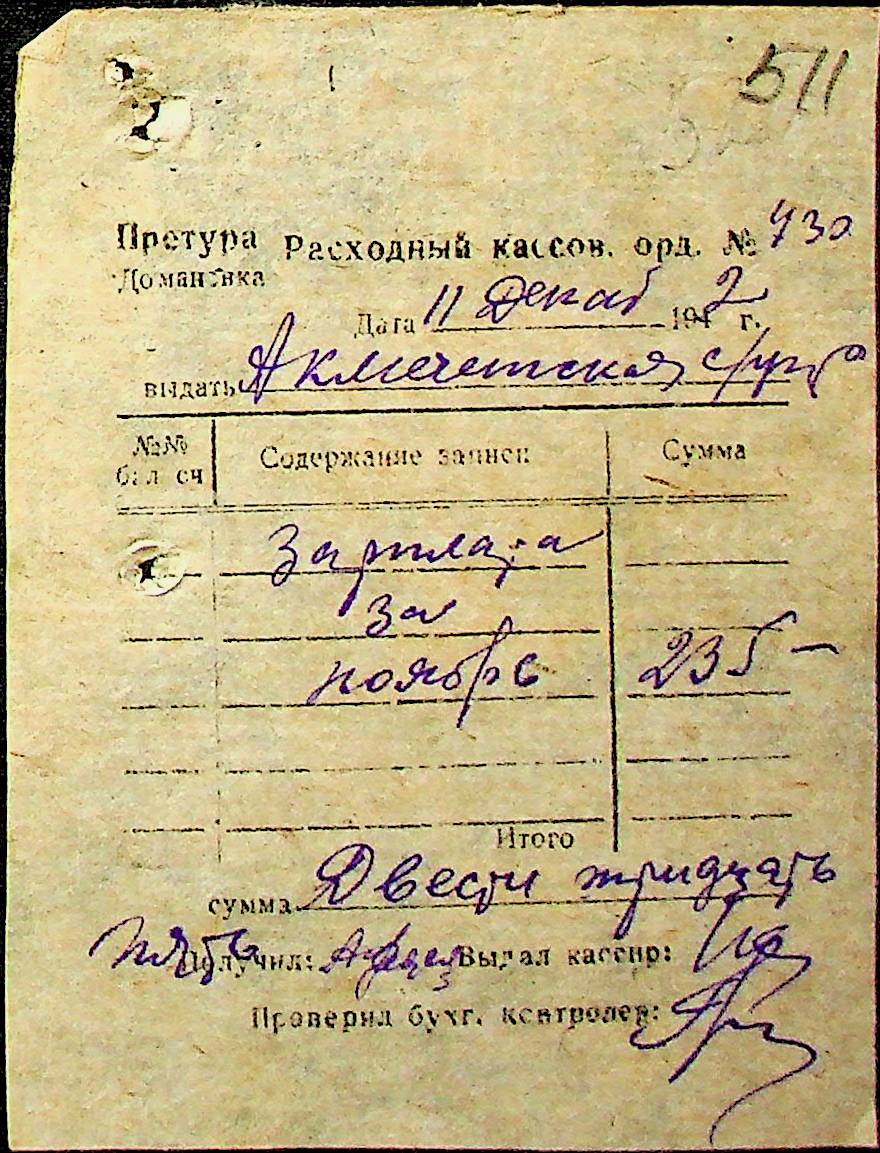 511
Претура Расходный кассов. орд. № 730
Доманівка
Дата 11 Декаб 1942 г.
выдать Акмечетская с/упр
№№ бал сч Содержание записи Сумма
Зарплата
за
ноябрь 235 —
Итого
сумма Двести тридцать
пять
Получил: Выдал кассир:
Проверил бухг. контролер: